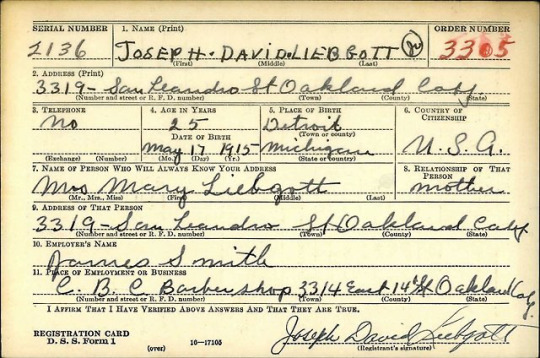 SERIAL NUMBER 1. NAME (Print) ORDER NUMBER
2136 JOSEPH. DAVID. LIEBGOTT 3305
(First) (Middle) (Last)
2. ADDRESS (Print)
3319- San Leandro St Oakland Caly.
(Number and street or R. F. D. number) (Town) (County) (State)
3. TELEPHONE 4. AGE IN YEARS 5. PLACE OF BIRTH 6. COUNTRY OF CITIZENSHIP
No 25 Detroit
DATE OF BIRTH (Town or county)
May 17 1915- Michigan U.S.A.
(Exchange) (Number) (Mo.) (Day) (Yr.) (State or country)
7. NAME OF PERSON WHO WILL ALWAYS KNOW YOUR ADDRESS 8. RELATIONSHIP OF THAT PERSON
Mrs Mary Liebgott mother
(Mr., Mrs., Miss) (First) (Middle) (Last)
9. ADDRESS OF THAT PERSON
3319- San Leandro St Oakland Caly
(Number and street or R. F. D. number) (Town) (County) (State)
10. EMPLOYER'S NAME
James Smith
11. PLACE OF EMPLOYMENT OR BUSINESS
C. B. C. Barbershop 3314 East 14th St Oakland Caly.
(Number and street or R. F. D. number) (Town) (County) (State)
I AFFIRM THAT I HAVE VERIFIED ABOVE ANSWERS AND THAT THEY ARE TRUE.
REGISTRATION CARD
D. S. S. Form 1 (over) 16-17105
Joseph David Liebgott
(Registrant's signature)